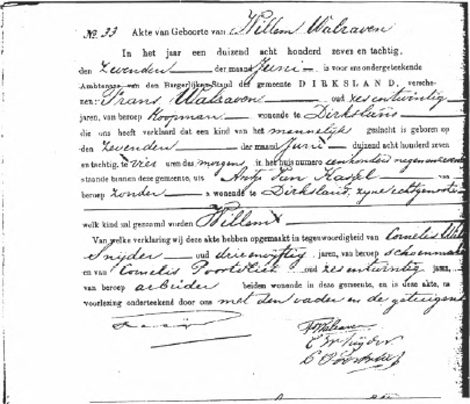 No. 33 Akte van Geboorte van Willem Walraven
In het jaar een duizend acht honderd zeven en tachtig,
den Zevenden der maand Juni is voor ons ondergeteekende
Ambtenaar van den Burgerlijken Stand der gemeente DIRKSLAND, versche-
nen: Frans Walraven oud zes en twintig
jaren, van beroep Koopman, wonende te Dirksland
die ons heeft verklaard dat een kind van het mannelijk geslacht is geboren op
den Zevenden der maand Juni duizend acht honderd zeven
en tachtig, te vier uren des morgen, in het huis numero een honderd negen
staande binnen deze gemeente, uit van
beroep zonder wonende te Dirksland, zijne echtgenoote
welk kind zal genaamd worden Willem
Van welke verklaring wij deze akte hebben opgemaakt in tegenwoordigheid van Cornelis
Snijder oud drie en vijftig jaren, van beroep schoenmaker
en van Cornelis Poortvliet oud zes en twintig jaren,
van beroep arbeider beiden wonende in deze gemeente, en is deze akte, na
voorlezing onderteekend door ons met den vader en de getuigen
F Walraven
C Snijder
C Poortvliet